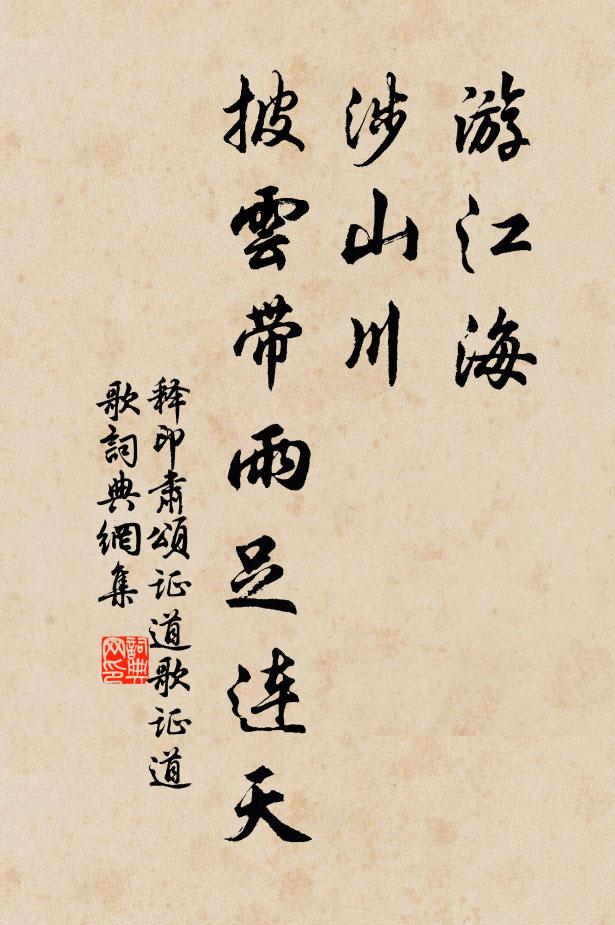 游江海
涉山川
披雲帶雨足连天
释印肃颂证道歌证道
歌詞典網集
詞典
网印